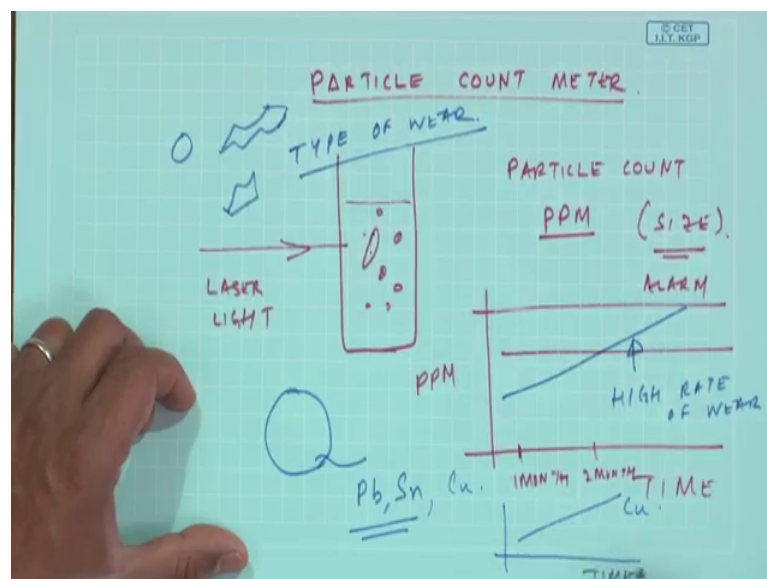 © CET
I.I.T. KGP
PARTICLE COUNT METER.
TYPE OF WEAR.
PARTICLE COUNT
PPM (SIZE).
LASER
LIGHT
ALARM
PPM
HIGH RATE
OF WEAR
1 MONTH 2 MONTH TIME
Pb, Sn, Cu.
Cu.
TIME